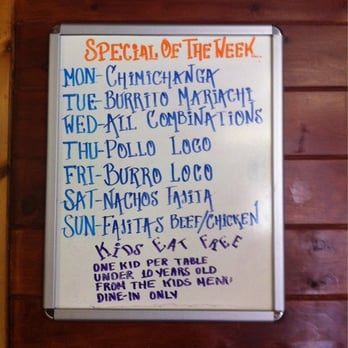 SPECIAL OF THE WEEK
MON-CHIMICHANGA
TUE-BURRITO MARIACHI
WED-ALL COMBINATIONS
THU-POLLO LOCO
FRI-BURRO LOCO
SAT-NACHOS FAJITA
SUN-FAJITA-S BEEF/CHICKEN
KIDS EAT FREE
ONE KID PER TABLE
UNDER 10 YEARS OLD
FROM THE KIDS MENU
DINE-IN ONLY